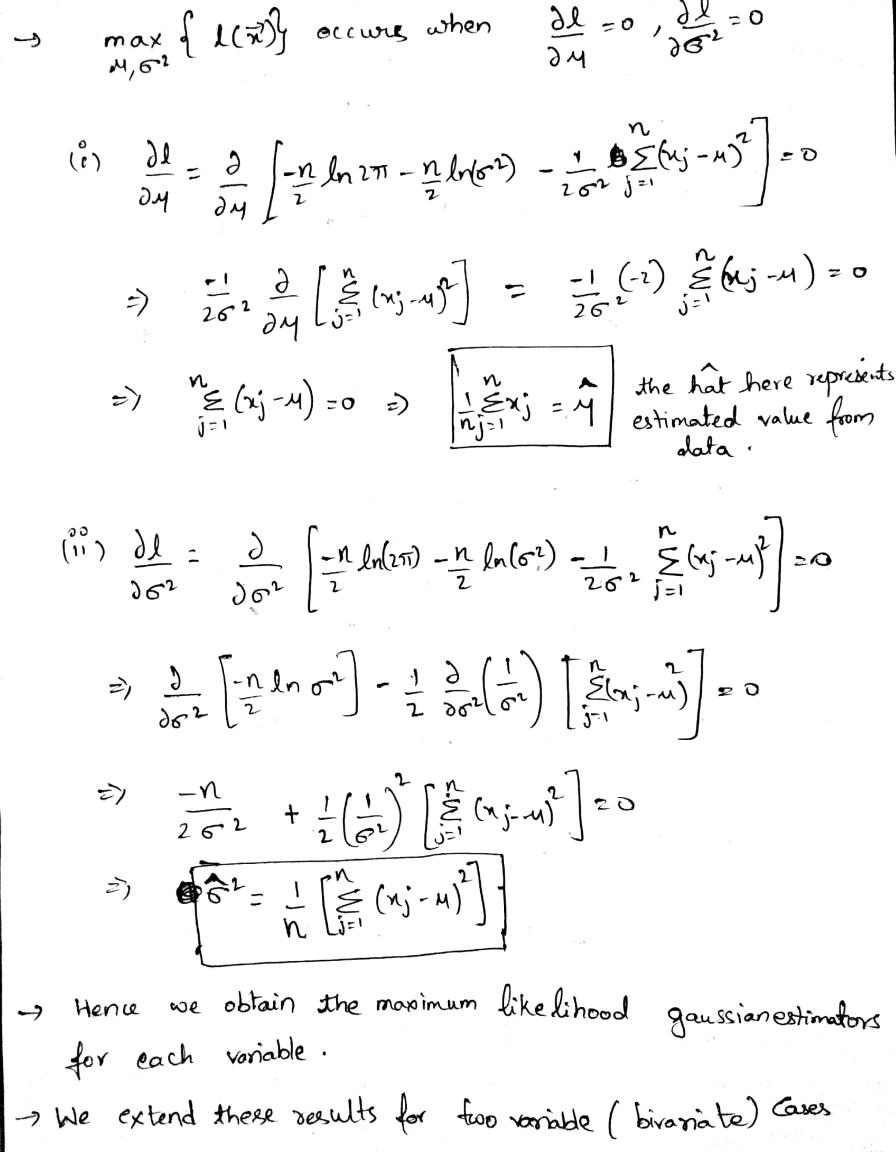 → max_{μ,σ²} { l(x⃗)} occurs when ∂l/∂μ = 0 , ∂l/∂σ² = 0
(i) ∂l/∂μ = ∂/∂μ [ -n/2 ln 2π - n/2 ln(σ²) - 1/2σ² Σ_{j=1}^{n} (xj - μ)² ] = 0
⇒ -1/2σ² ∂/∂μ [ Σ_{j=1}^{n} (xj - μ)² ] = -1/2σ² (-2) Σ_{j=1}^{n} (xj - μ) = 0
⇒ Σ_{j=1}^{n} (xj - μ) = 0 ⇒ 1/n Σ_{j=1}^{n} xj = μ̂
the hat here represents
estimated value from
data .
(ii) ∂l/∂σ² = ∂/∂σ² [ -n/2 ln(2π) - n/2 ln(σ²) - 1/2σ² Σ_{j=1}^{n} (xj - μ)² ] = 0
⇒ ∂/∂σ² [ -n/2 ln σ² ] - 1/2 ∂/∂σ² (1/σ²) [ Σ_{j=1}^{n} (xj - μ)² ] = 0
⇒ -n/2σ² + 1/2 (1/σ²)² [ Σ_{j=1}^{n} (xj - μ)² ] = 0
⇒ σ̂² = 1/n [ Σ_{j=1}^{n} (xj - μ)² ]
→ Hence we obtain the maximum likelihood gaussian estimators
for each variable .
→ We extend these results for two variable ( bivariate) Cases